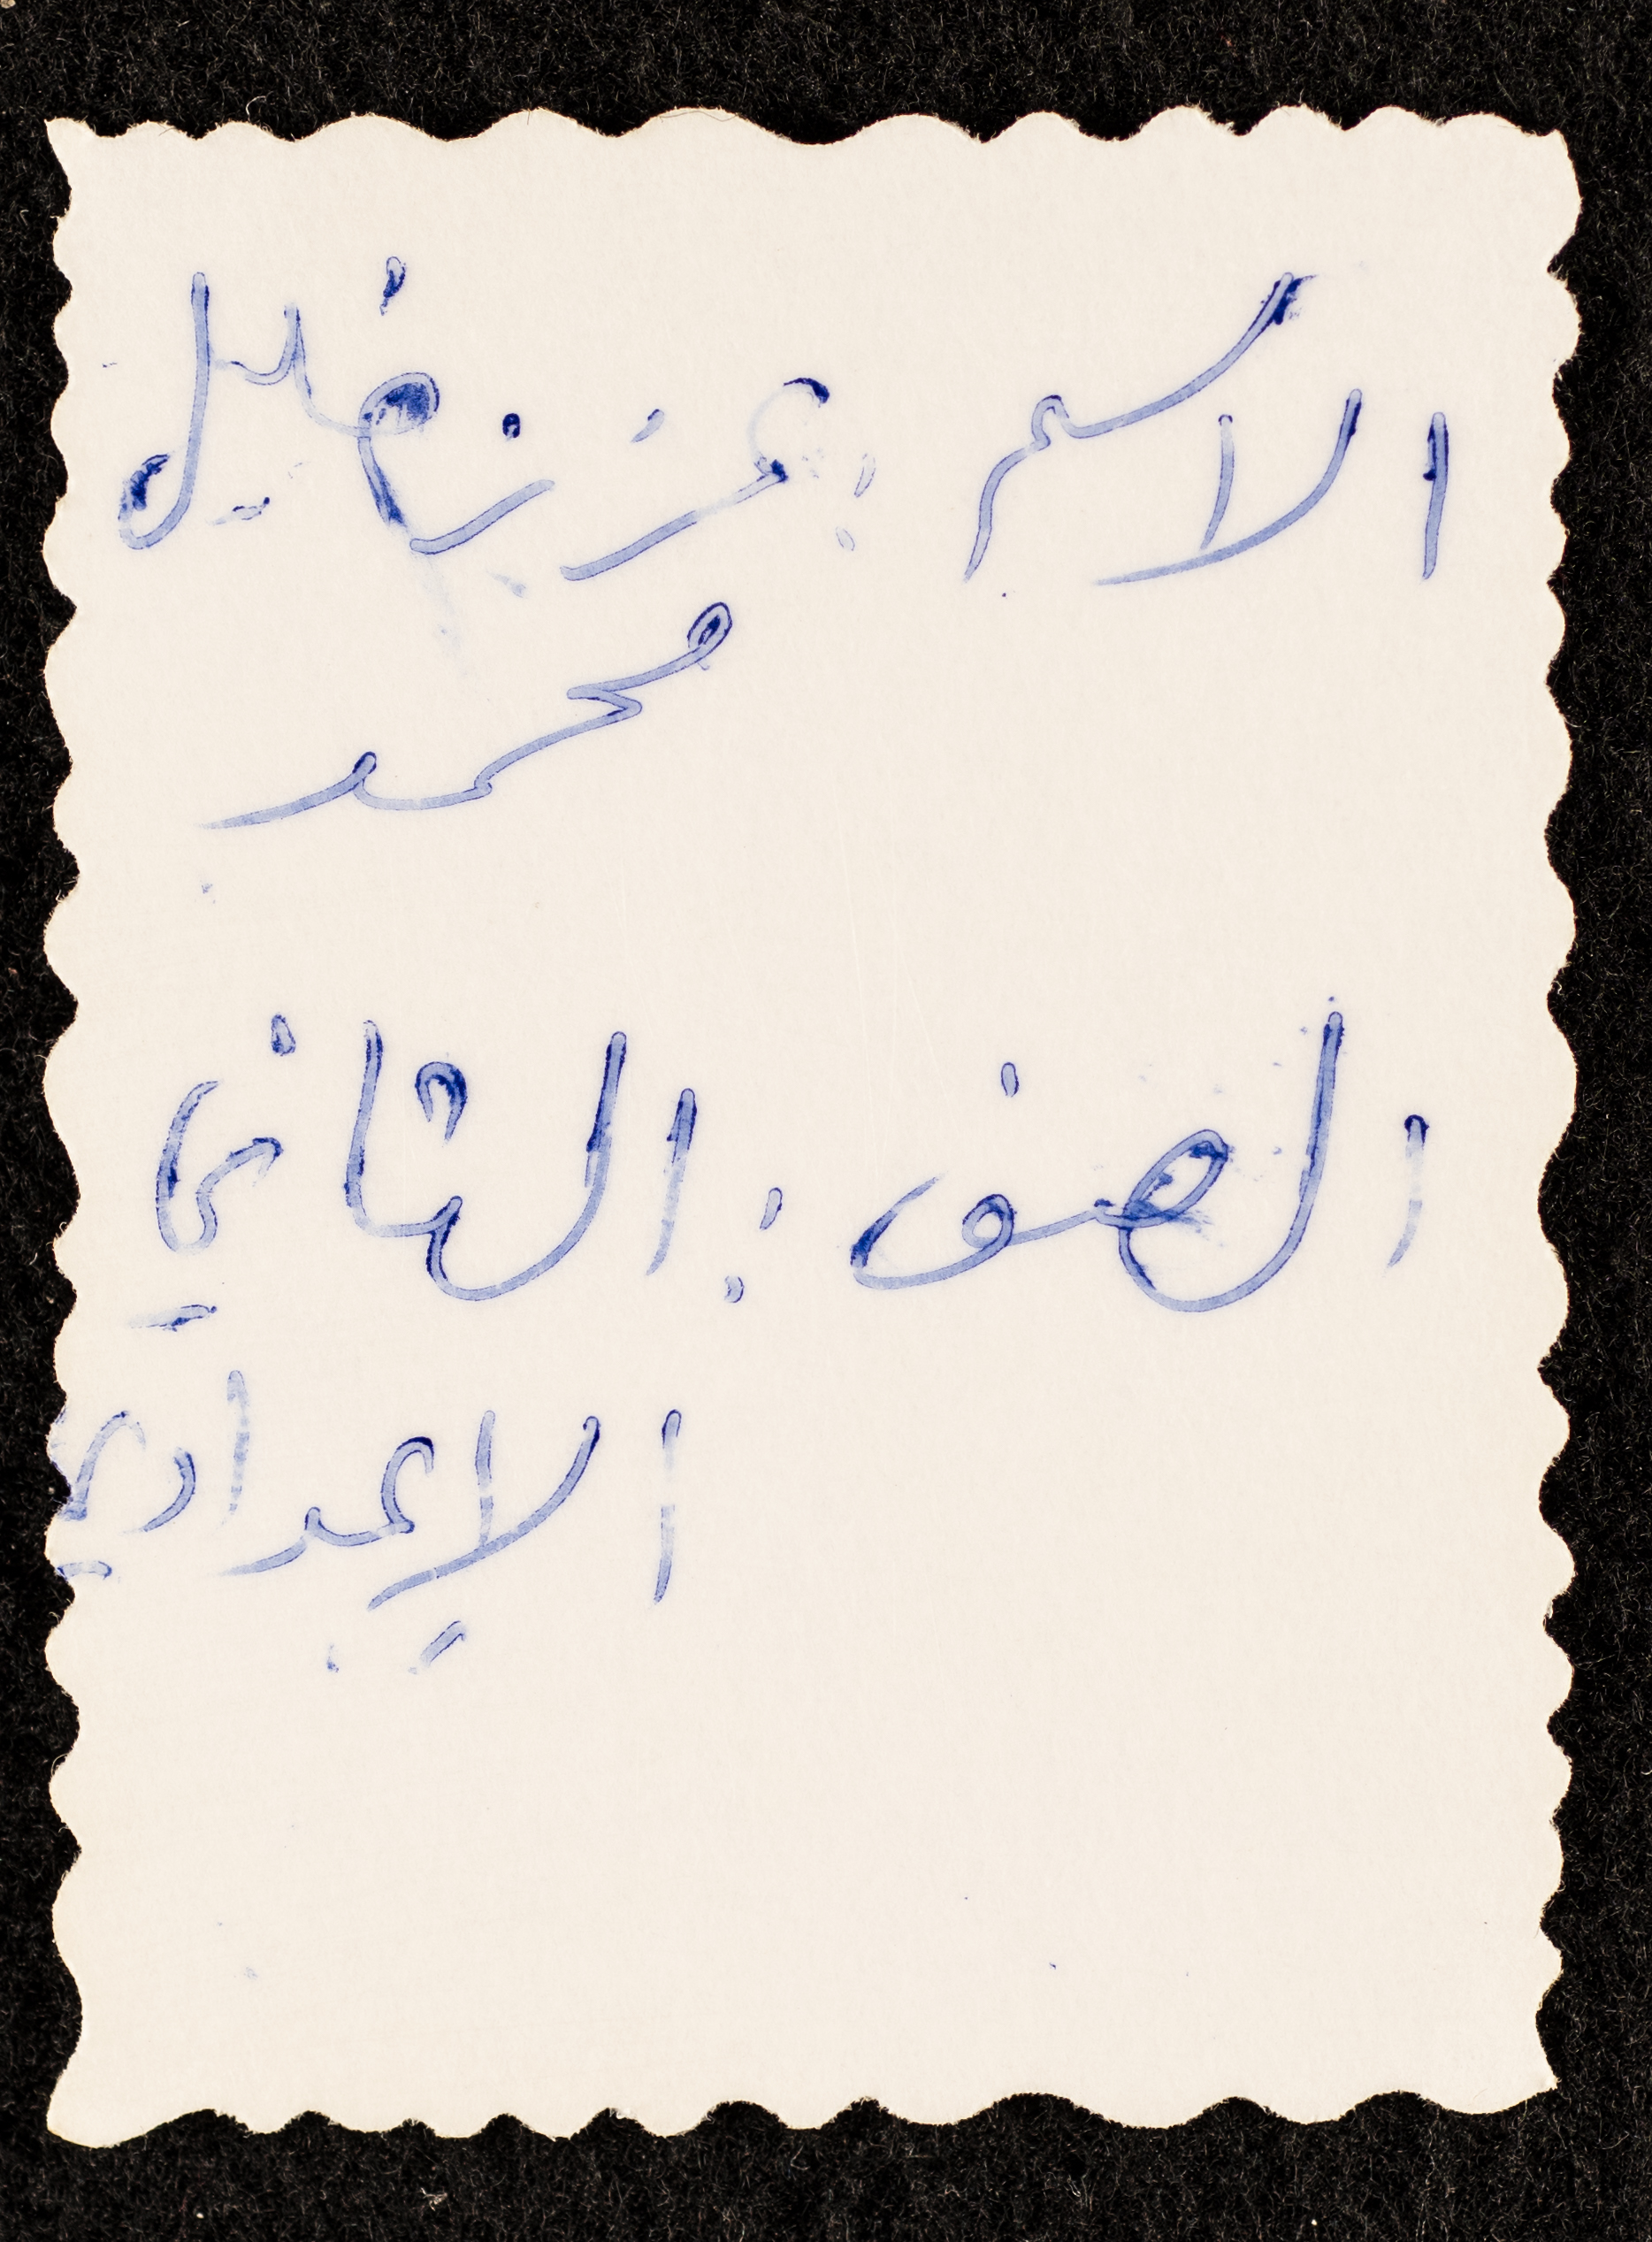 الاسم : عزيز خليل
محمد
الصف : الثاني
الإعدادي